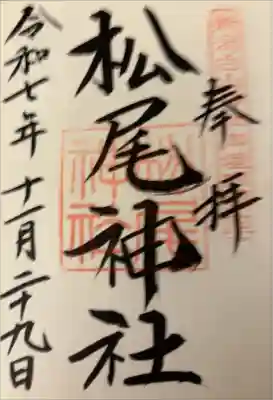 奉拝
松尾神社
令和七年十一月二十九日